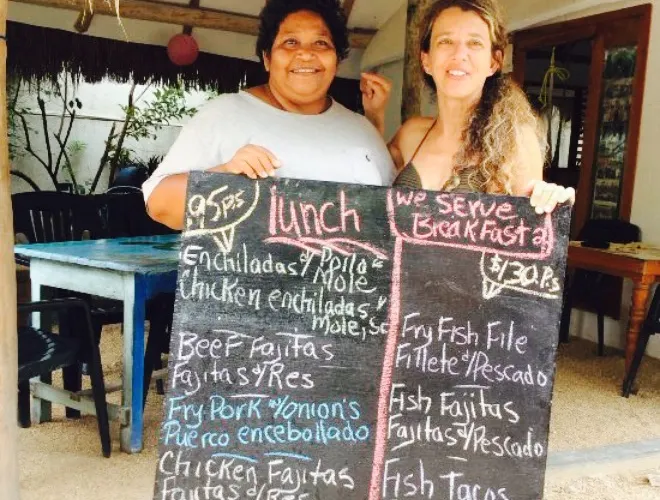 95P.s
lunch
Enchiladas d/ Pollo
Mole
Chicken enchiladas y
Mole, Sc
Beef Fajitas
Fajitas d/Res
Fry Pork w/onion's
Puerco encebollado
Chicken Fajitas
Fajitas d/Res
we serve
Breakfast
$130P.s
Fry Fish File
Fillete d/Pescado
Fish Fajitas
Fajitas d/Pescado
Fish Tacos